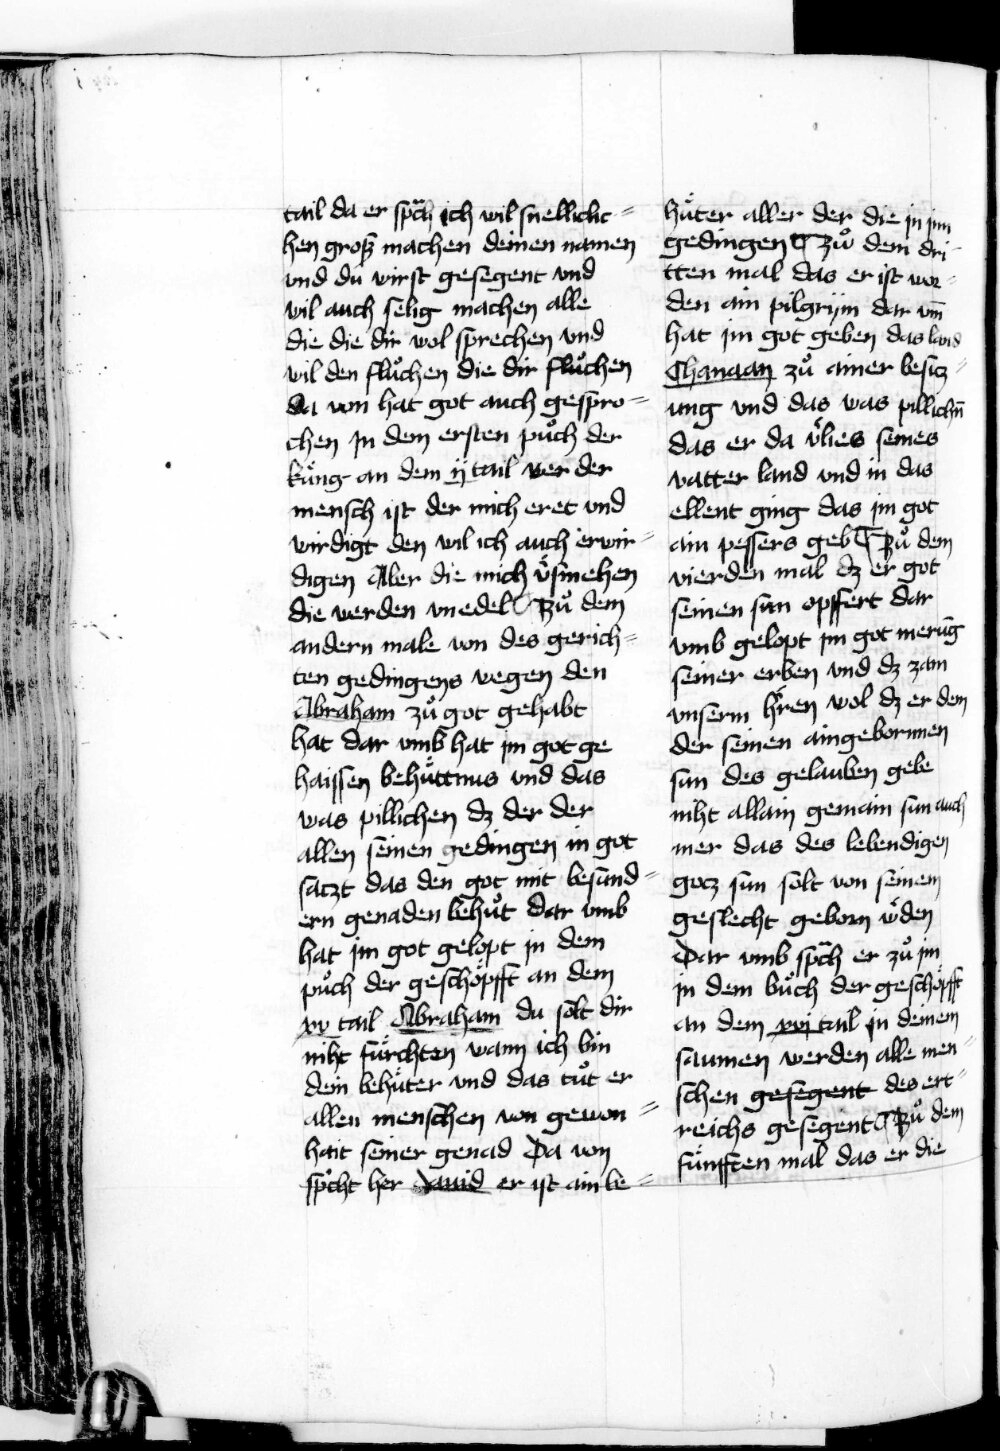 tail da er spͣch ich wil snellicle=
hen groß machen deinen namen
vnd du wirst gesegent vnd
wil auch selig machen alle
die die dir wol sprechen vnd
wil den fluͦchen die dir fluͦchen
da von hat got auch gespro=
chen Jn dem ersten puͦch der
kuͤng an dem ij tail wer der
mensch ist der mich eret vnd
wirdigt den wil ich auch erwir=
digen Aber die mich v̓smehen
die werden vnedel ¶ Zuͦ dem
andern male von des gerich=
ten gedingens wegen den
Abraham zuͦ got gehabt
hat dar vmb hat jm got ge
haissen behuͤttnus vnd das
was pillichen dz der der
allen seinen gedingen in got
saczt das den got mit besund=
ern genaden behuͤt dar vmb
hat jm got gelopt in dem
puͦch der geschoͤpfft an dem
xv tail Abraham du solt dir
niht fuͤrchten wann ich bin
dein behuͤter vnd das tuͦt er
allen menschen von gewon=
hait seiner genad Da von
spͥcht her Dauid er ist ain be=
huͤter aller der die jn jm
gedingen ¶ Zuͦ dem dri=
tten mal das er ist wor=
den ain pilgrijm dar vm̄
hat jm got geben das land
Chanaan zuͦ ainer besicz=
ung vnd das was pillichn̄
das er da v̓lies seines
vatter land vnd in das
ellent ging das jm got
ain pessers geb ¶ Zuͦ dem
vierden mal dz er got
seinen sun opffert dar
vmb gelopt jm got merūg
seiner erben vnd dz zam
vnserm hr̓ren wol dz er dem
der seinen aingebornnen
sun des gelauben gebe
niht allain gemain sun auch
mer das des lebendigen
gocz sun solt von seinem
geslecht geborn w̓den
Dar vmb spͣch er zuͦ jm
jn dem buͦch der geschoͤpfft
an dem xxij tail jn deinem
saumen werden alle men=
schen gesegent des ert=
reichs gesegent ¶ Zuͦ dem
fuͤnfften mal das er die